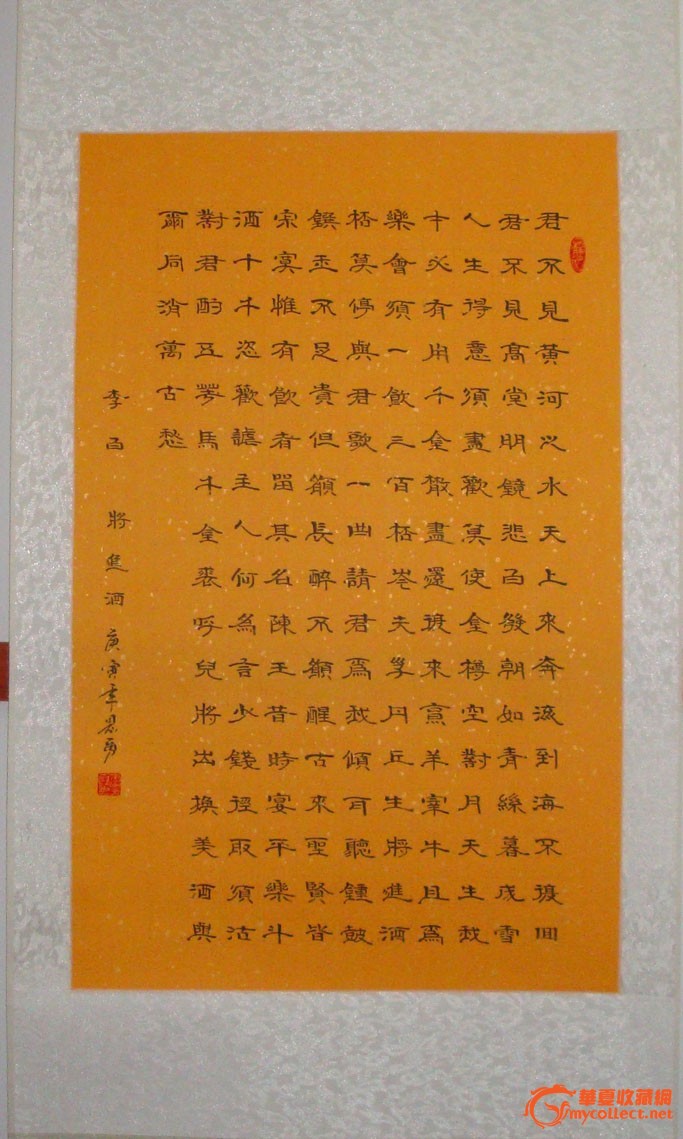 君不見黃河之水天上來奔流到海不復回
君不見高堂明鏡悲白發朝如青絲暮成雪
人生得意須盡歡莫使金樽空對月天生我
才必有用千金散盡還復來烹羊宰牛且為
樂會須一飲三百杯岑夫子丹丘生將進酒
杯莫停與君歌一曲請君為我傾耳聽鐘鼓
饌玉不足貴但願長醉不願醒古來聖賢皆
寂寞惟有飲者留其名陳王昔時宴平樂斗
酒十千恣歡謔主人何為言少錢徑取須沽
對君酌五花馬千金裘呼兒將出換美酒與
爾同消萬古愁
李白 將進酒 庚寅年
華夏收藏網
mycollect.net